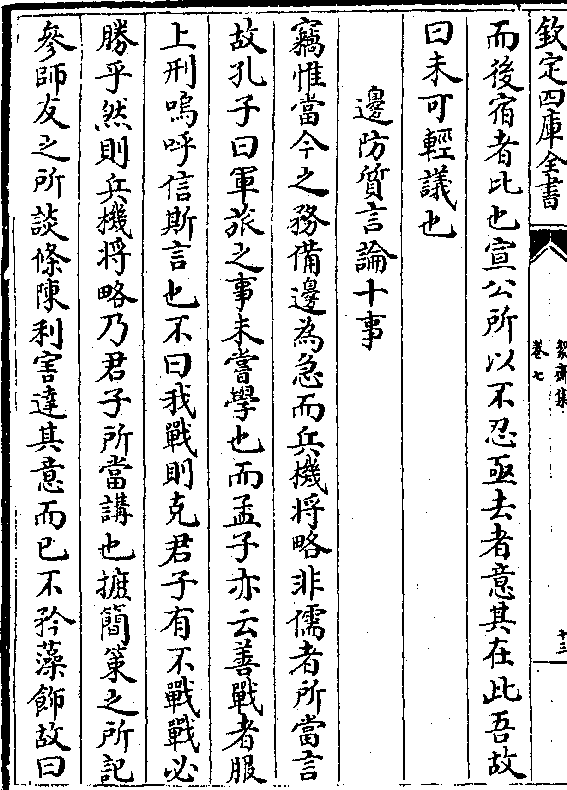 欽定四庫全書
絜齋集
卷七
十三
而後宿者比也宣公所以不忍亟去者意其在此吾故
曰未可輕議也
邊防質言論十事
竊惟當今之務備邊為急而兵機将略非儒者所當言
故孔子曰軍旅之事未嘗學也而孟子亦云善戰者服
上刑嗚呼信斯言也不曰我戰則克君子有不戰戰必
勝乎然則兵機将略乃君子所當講也摭簡策之所記
參師友之所談條陳利害達其意而已不矜藻飾故曰